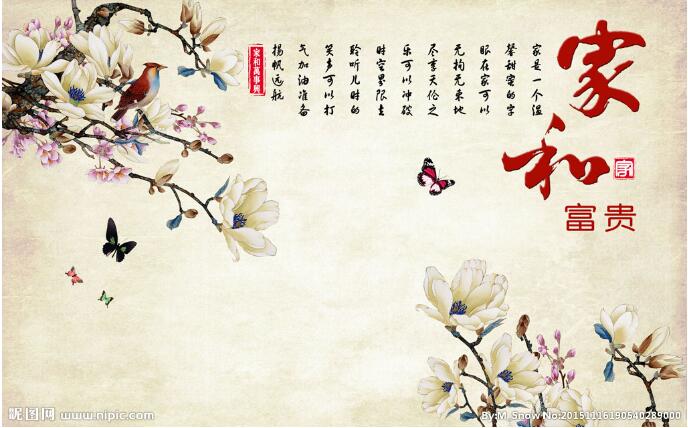 家和
富贵
家是一个温
馨甜蜜的字
眼在家可以
无拘无束地
尽享天伦之
乐可以冲破
时空界限去
聆听儿时的
笑声可以打
气加油准备
扬帆远航
家和萬事興
昵图网 www.nipic.com
By:M_Snow No:20151116190540289000